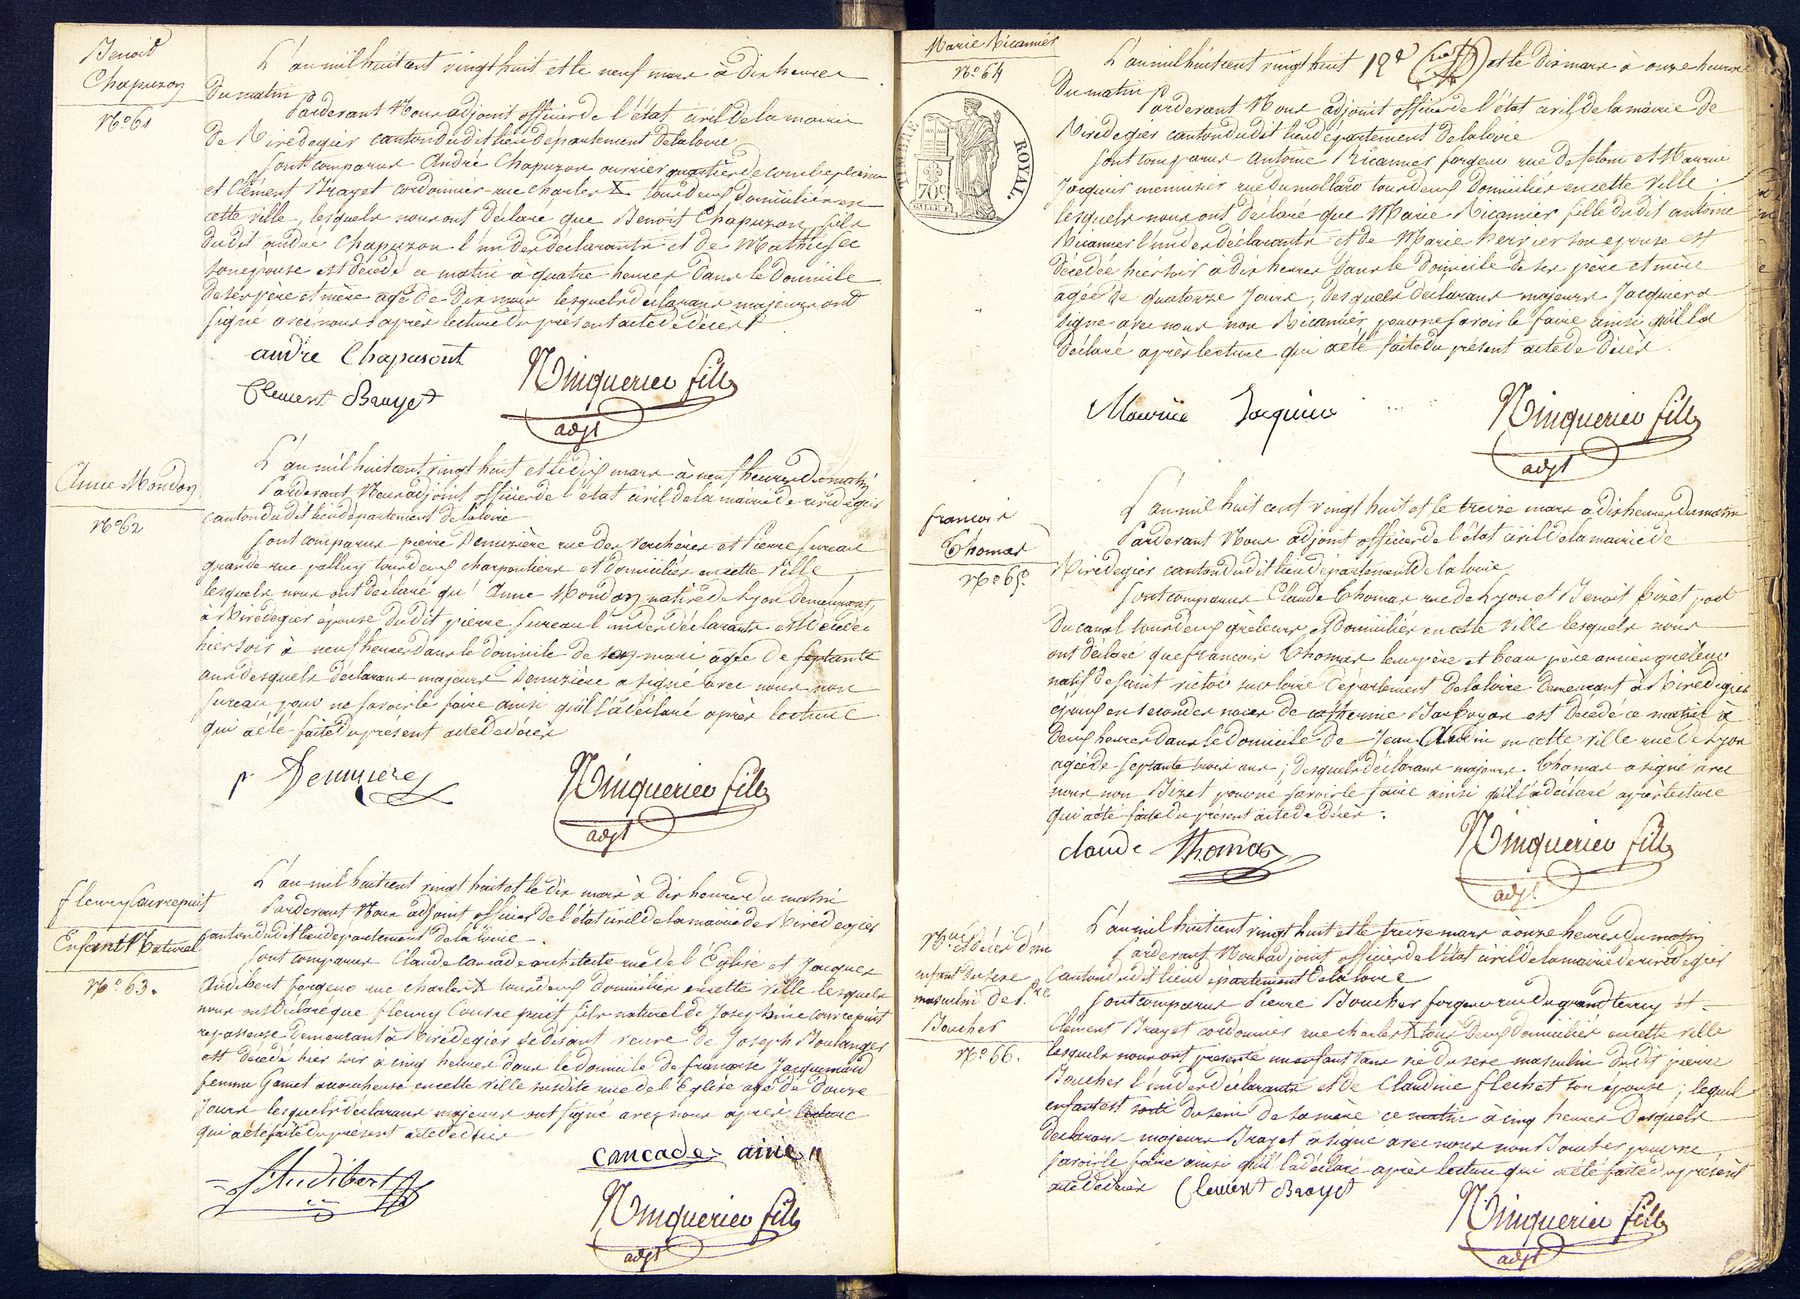 Benoit
Chapuzon
N° 61
L'an mil huit cent vingt huit et le neuf mars à dix heures
du matin
Pardevant Nous adjoint officier de l'état civil de la mairie
de Rivedegier canton dudit lieu département de la loire
sont comparus André Chapuzon ouvrier quartier de combeplaine
et Clément Brayet cordonnier rue charles X tous deux domiciliés en
cette ville, lesquels nous ont déclaré que Benoit Chapuzon fils
dudit andré Chapuzon l'un des déclarants et de
son épouse est décédé ce matin à quatre heures dans le domicile
de ses père et mère agé de dix mois lesquels déclarans majeurs ont
signé avec nous après lecture du présent acte de décès
andre Chapusont
Clement Brayet
Ninquerier fils
adjt
Anne Mondon
N° 62
L'an mil huit cent vingt huit et le dix mars à neuf heures du matin
Pardevant Nous adjoint officier de l'état civil de la mairie de rivedegier
canton dudit lieu département de la loire
sont comparus pierre Demizière rue des verchères et Pierre fureau
grande rue palluy tous deux charpentiers et domiciliés en cette ville
lesquels nous ont déclaré qu' Anne Mondon native de Lyon demeurant
à Rivedegier épouse dudit pierre fureau l'un des déclarants est décédée
hier soir à neuf heures dans le domicile de son mari agée de septante
ans desquels déclarans majeurs Demizière a signé avec nous non
fureau pour ne savoir le faire ainsi qu'il l'a déclaré après lecture
qui a été faite du présent acte de décès
p. Demizieres
Ninquerier fils
adjt
fleury Courrepuit
Enfant Naturel
N° 63.
L'an mil huit cent vingt huit et le dix mars à dix heures du matin
Pardevant Nous adjoint officier de l'état civil de la mairie de Rivedegier
canton dudit lieu département de la loire.
sont comparus Claude Cancade architecte rue de l'Eglise et Jacques
Audibert forgeur rue charles X tous deux domiciliés en cette ville lesquels
nous ont déclaré que fleury Courrepuit fils naturel de Josephine Courrepuit
repasseuse demeurant à Rivedegier se disant veuve de Joseph Boulanger
est décédé hier soir à cinq heures dans le domicile de françoise Jacquemond
femme Gamet accoucheuse en cette ville susdite rue de l'Eglise agé de douze
jours lesquels déclarans majeurs ont signé avec nous après lecture
qui a été faite du présent acte de décès
cancade ainé
Audibert
Ninquerier fils
adjt
Marie Ricannier
N° 64
TIMBRE ROYAL
70c
L'an mil huit cent vingt huit et le dix mars à onze heures
du matin
Pardevant Nous adjoint officier de l'état civil de la mairie de
Rivedegier canton dudit lieu département de la loire
sont comparus Antoine Ricannier forgeur rue de felom et Maurice
Jacquier menuisier rue du mollard tous deux domiciliés en cette ville
lesquels nous ont déclaré que Marie Ricannier fille dudit antoine
Ricannier l'un des déclarants et de Marie hervier son épouse est
décédée hier soir à dix heures dans le domicile de ses père et mère
agée de quatorze jours, desquels déclarans majeurs Jacquier a
signé avec nous non Ricannier pour ne savoir le faire ainsi qu'il l'a
déclaré après lecture qui a été faite du présent acte de décès.
Maurice Jacquier
Ninquerier fils
adjt
francois
Thomas
N° 65
L'an mil huit cent vingt huit et le treize mars à dix heures du matin
Pardevant Nous adjoint officier de l'état civil de la mairie de
Rivedegier canton dudit lieu département de la loire
sont comparus Claude Thomas rue de Lyon et Benoit Bizet port
du canal tous deux grêleurs et domiciliés en cette ville lesquels nous
ont déclaré que francois Thomas leur père et beau père ancien grêleur
natif de saint victor sur loire département de la loire demeurant à Rivedegier
époux en secondes noces de catherine est décédé ce matin à
deux heures dans le domicile de Jean Claudin en cette ville rue de Lyon
agé de septante trois ans; desquels déclarans majeurs. Thomas a signé avec
nous non Bizet pour ne savoir le faire ainsi qu'il l'a déclaré après lecture
qui a été faite du présent acte de décès.
claude Thomas
Ninquerier fils
adjt
Nce et décès d'un
enfant du sexe
masculin de Pre
Boucher
N° 66.
L'an mil huit cent vingt huit et le treize mars à onze heures du matin
Pardevant Nous adjoint officier de l'état civil de la mairie de rivedegier
canton dudit lieu département de la loire
sont comparus Pierre Boucher forgeur rue du grand terray et
Clément Brayet cordonnier rue charles X tous deux domiciliés en cette ville
lesquels nous ont présenté un enfant sans vie du sexe masculin dudit pierre
Boucher l'un des déclarants et de Claudine flechet son épouse; lequel
enfant est sorti du sein de sa mère ce matin à cinq heures desquels
déclarans majeurs Brayet a signé avec nous non Boucher pour ne
savoir le faire ainsi qu'il l'a déclaré après lecture qui a été faite du présent
acte de décès
Clement Brayet
Ninquerier fils
adjt